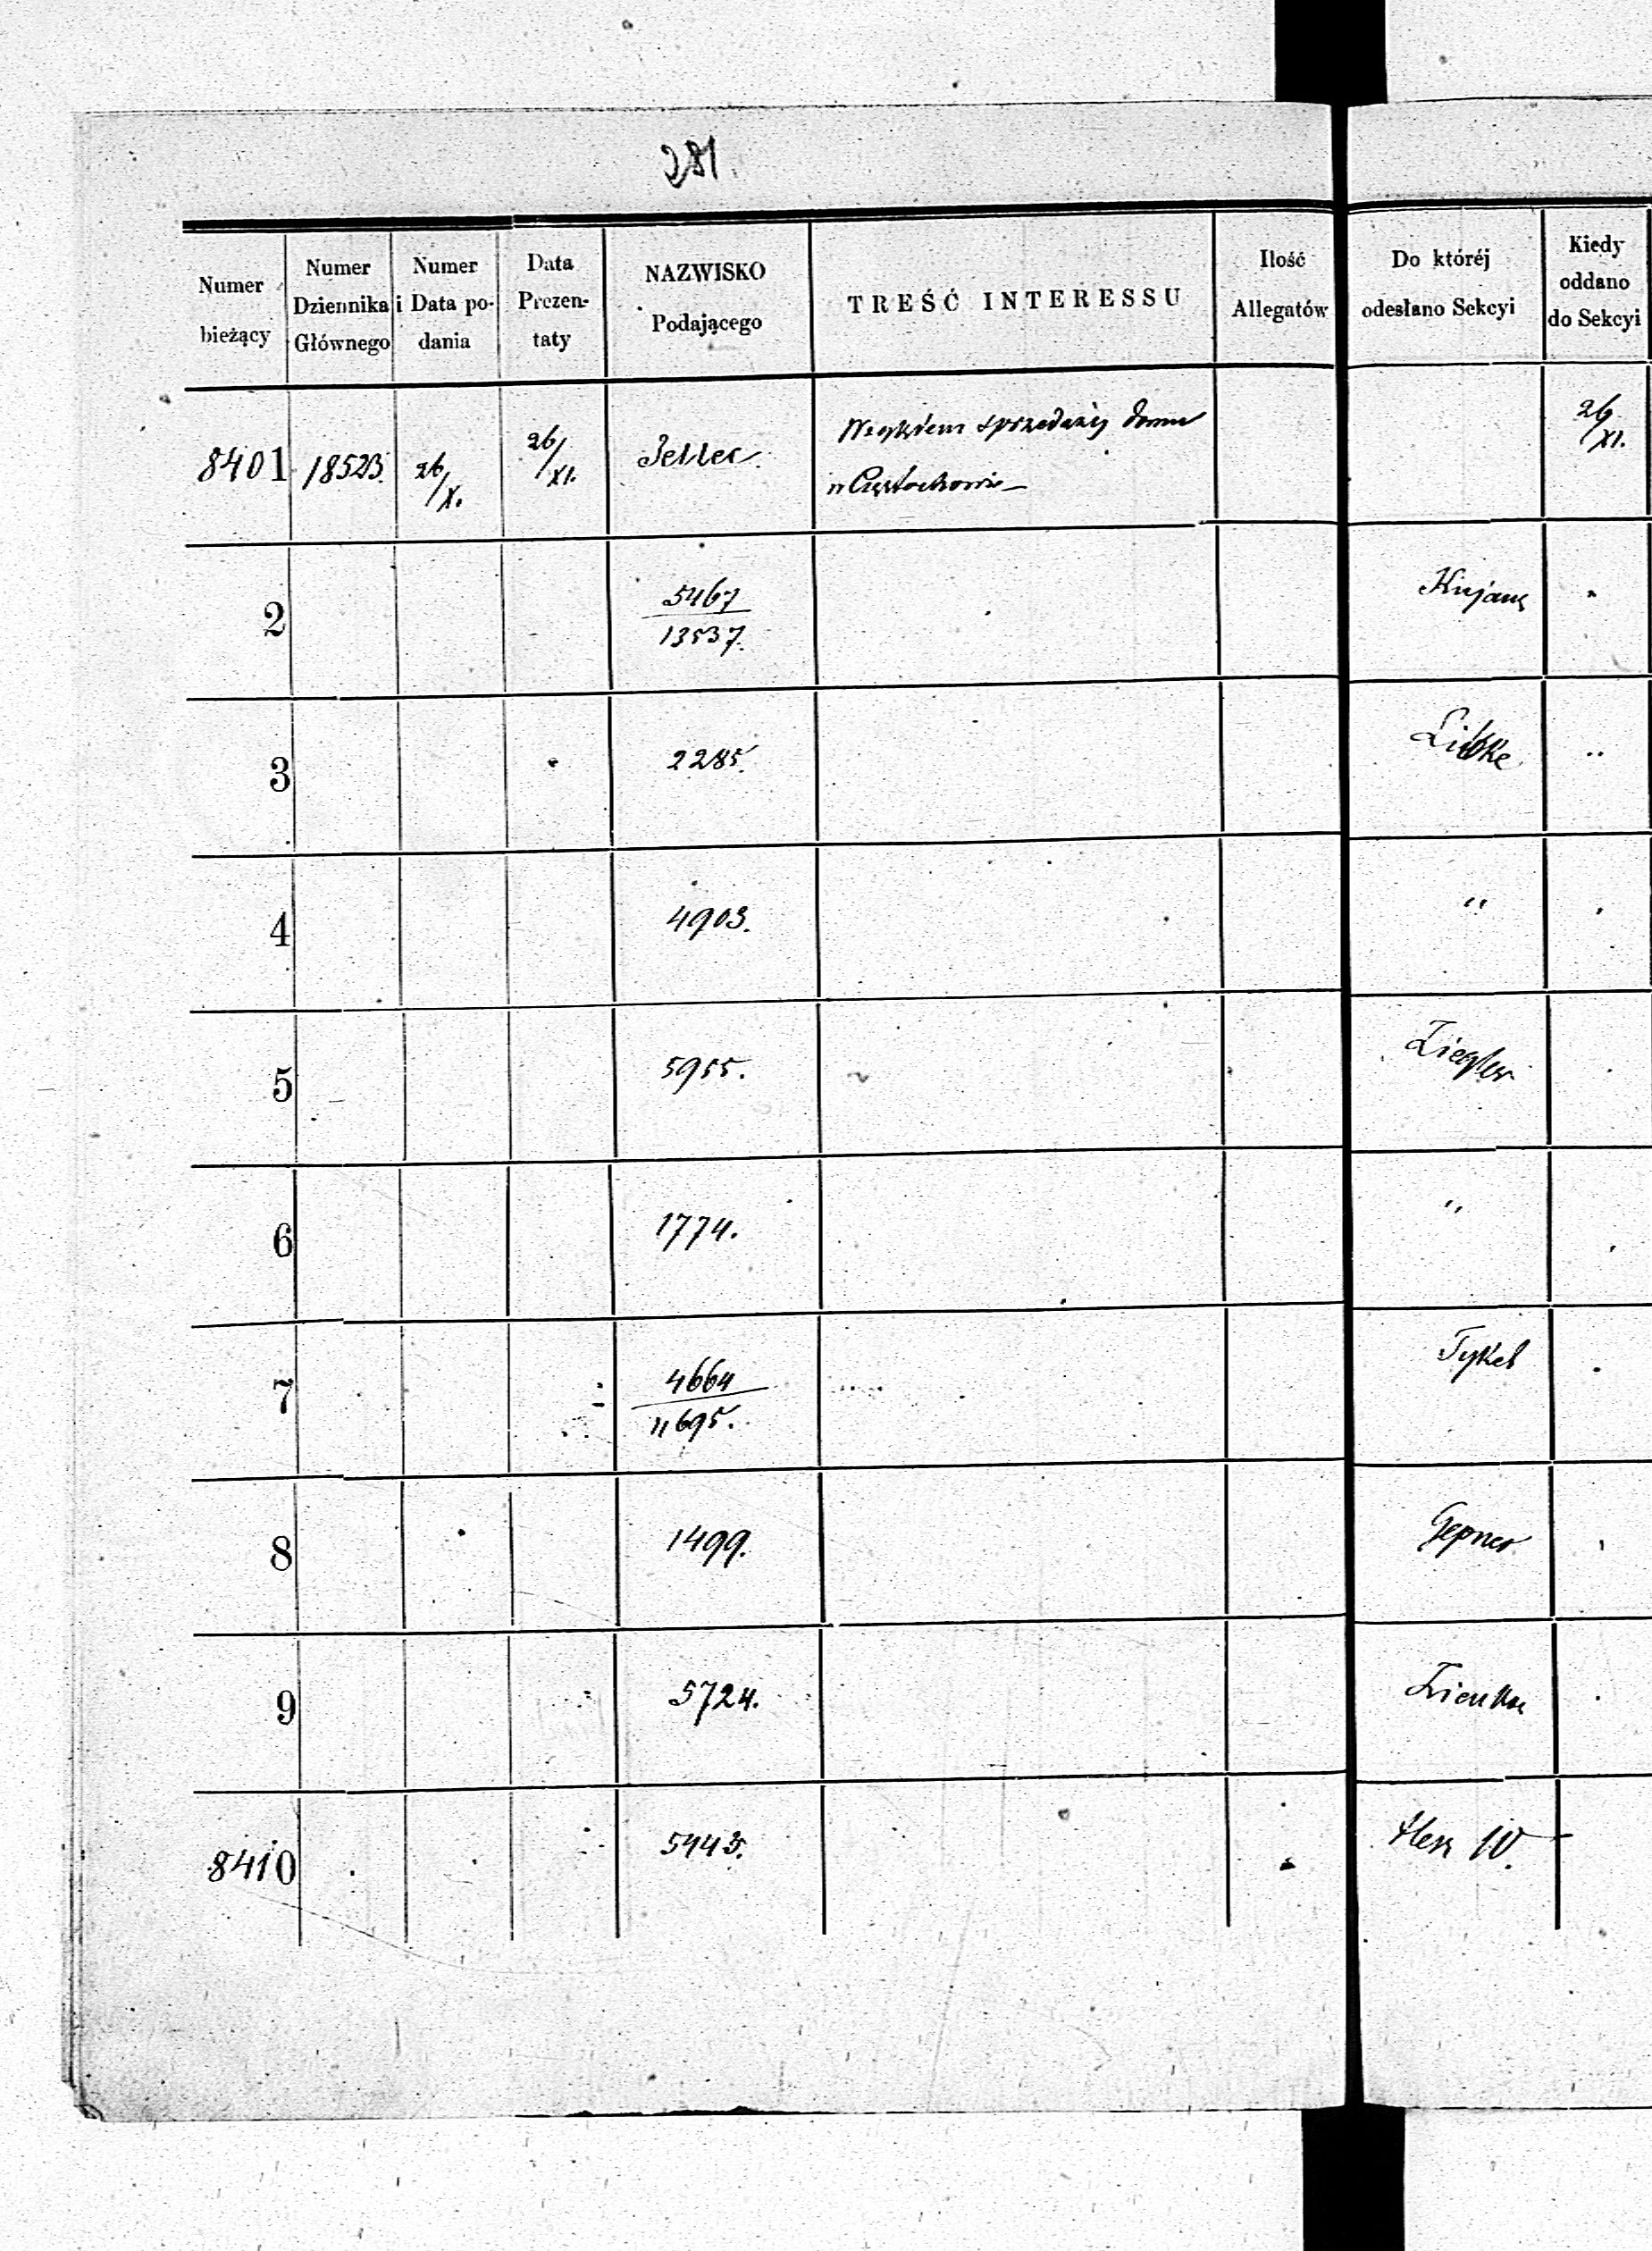 281.
Numer bieżący
Numer Dziennika Głównego
Numer i Data podania
Data Prezentaty
NAZWISKO Podającego
TREŚĆ INTERESSU
Ilość Allegatów
Do któréj odesłano Sekcyi
Kiedy oddano do Sekcyi
8401 18523. 26/X. 26/XI. sprzedaży domu 26/XI.
w Częstochowie
2 5467 Kujaw
13537.
3 2285. "
4 4903. "
5 5955. Ziegler
6 1774. "
7 4664 Tykel
11695.
8 1499. Gepner
9 5724.
8410 5443. Hesse W.